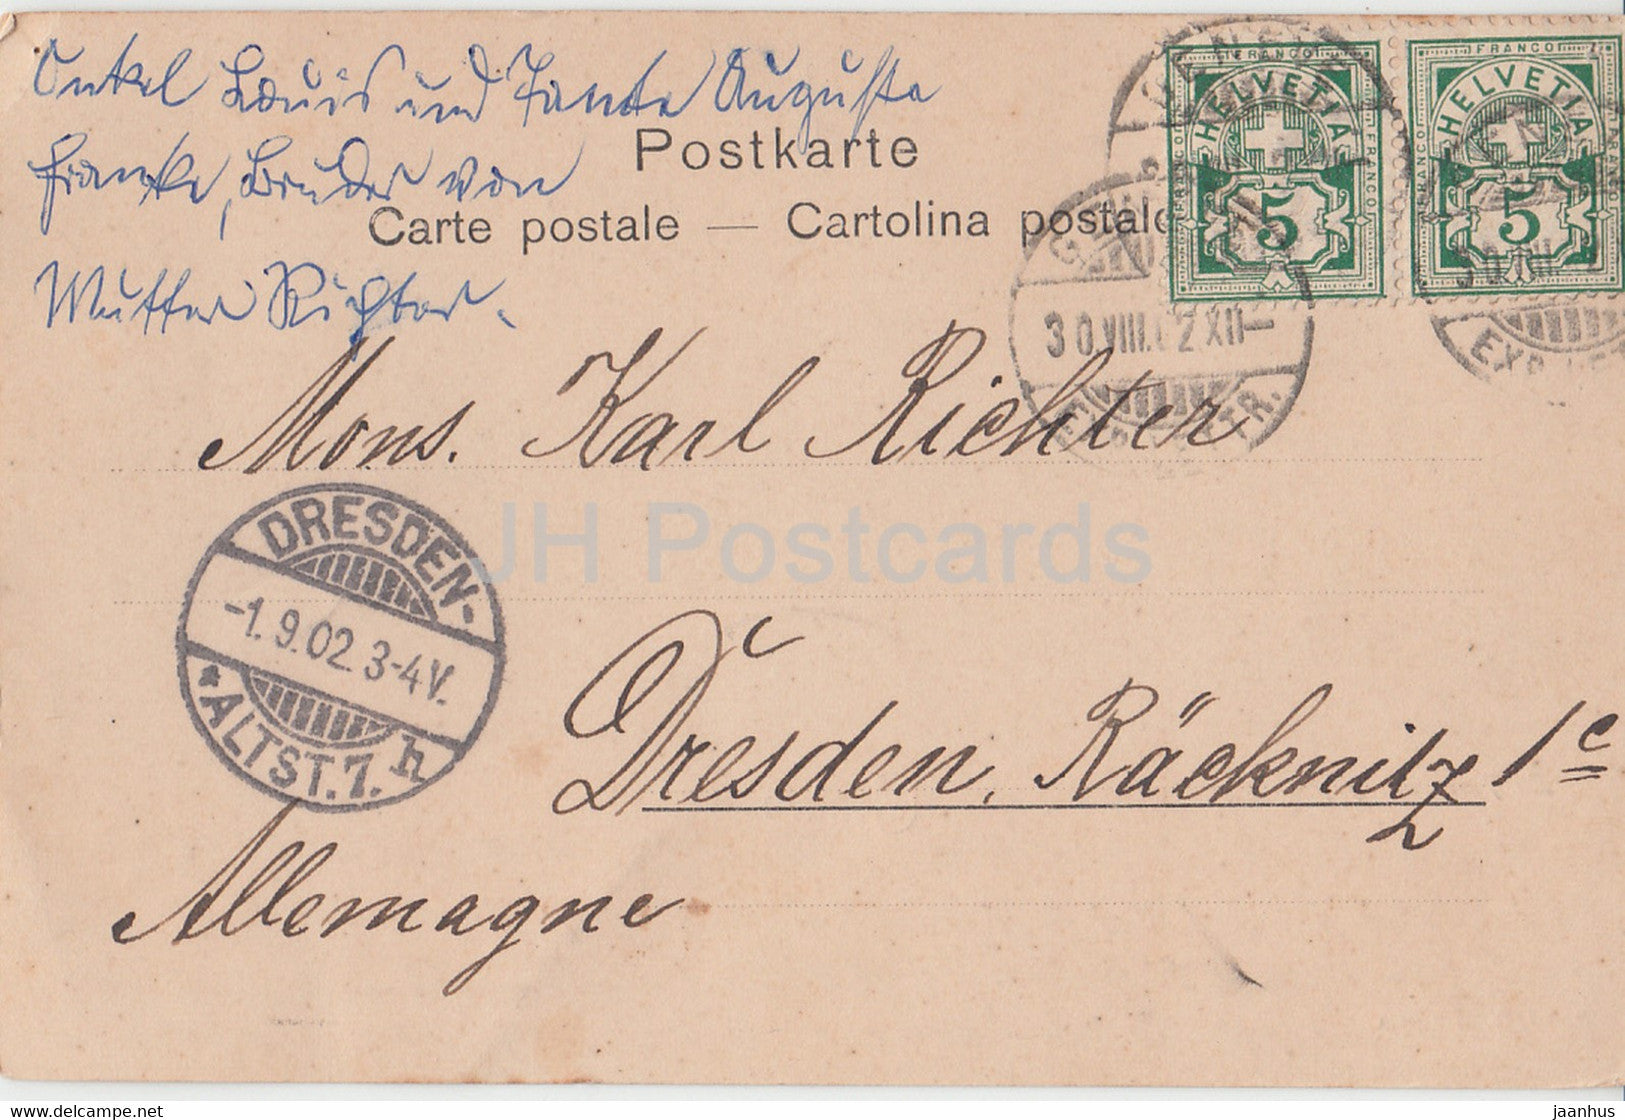 Onkel Louis und Tante Auguste
Franke, Bruder von
Mutter Richter.
Postkarte
Carte postale — Cartolina postale
FRANCO
HELVETIA
FRANCO
FRANCO
5
FRANCO
HELVETIA
FRANCO
FRANCO
5
30.VIII.02 XII—
EXP. LETTR.
Mons. Karl Richter
DRESDEN-
-1.9.02 3-4V.
* ALTST.7. h
Dresden, Räcknitz 1c
Allemagne
JH Postcards
jaanhus